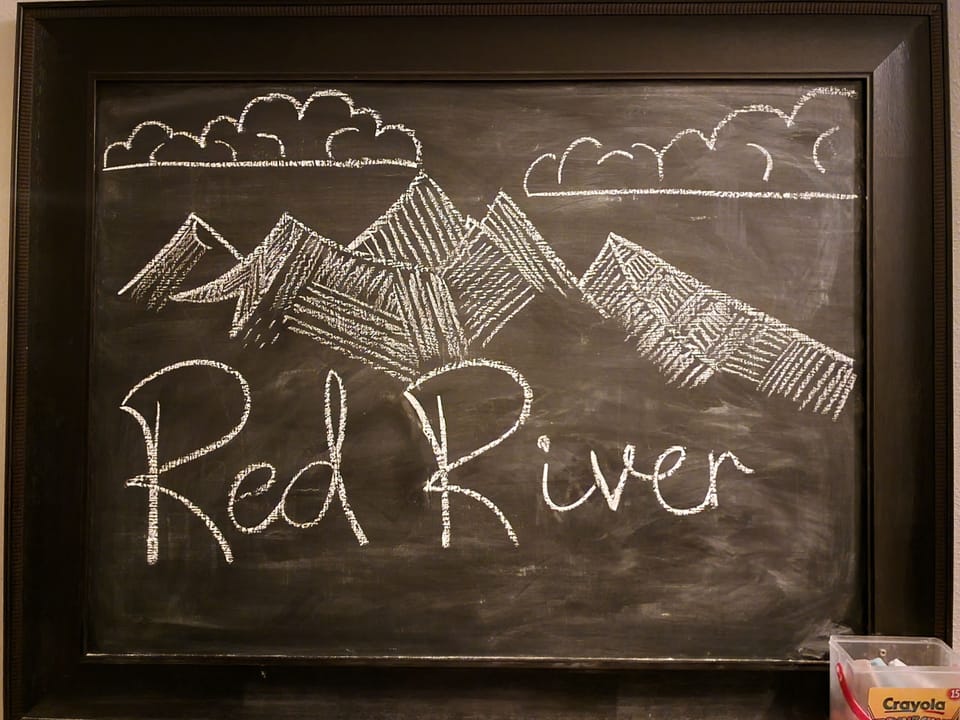 Red River
Crayola
15